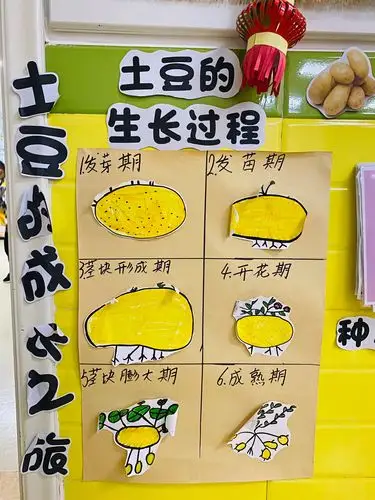 土豆的成长之旅
土豆的
生长过程
1.发芽期
2.发苗期
3.茎块形成期
4.开花期
5.茎块膨大期
6.成熟期
种